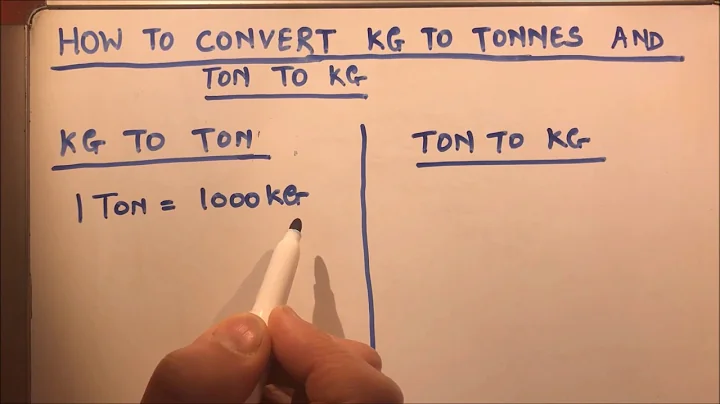 HOW TO CONVERT KG TO TONNES AND
TON TO KG
KG TO TON
1 TON = 1000KG
TON TO KG